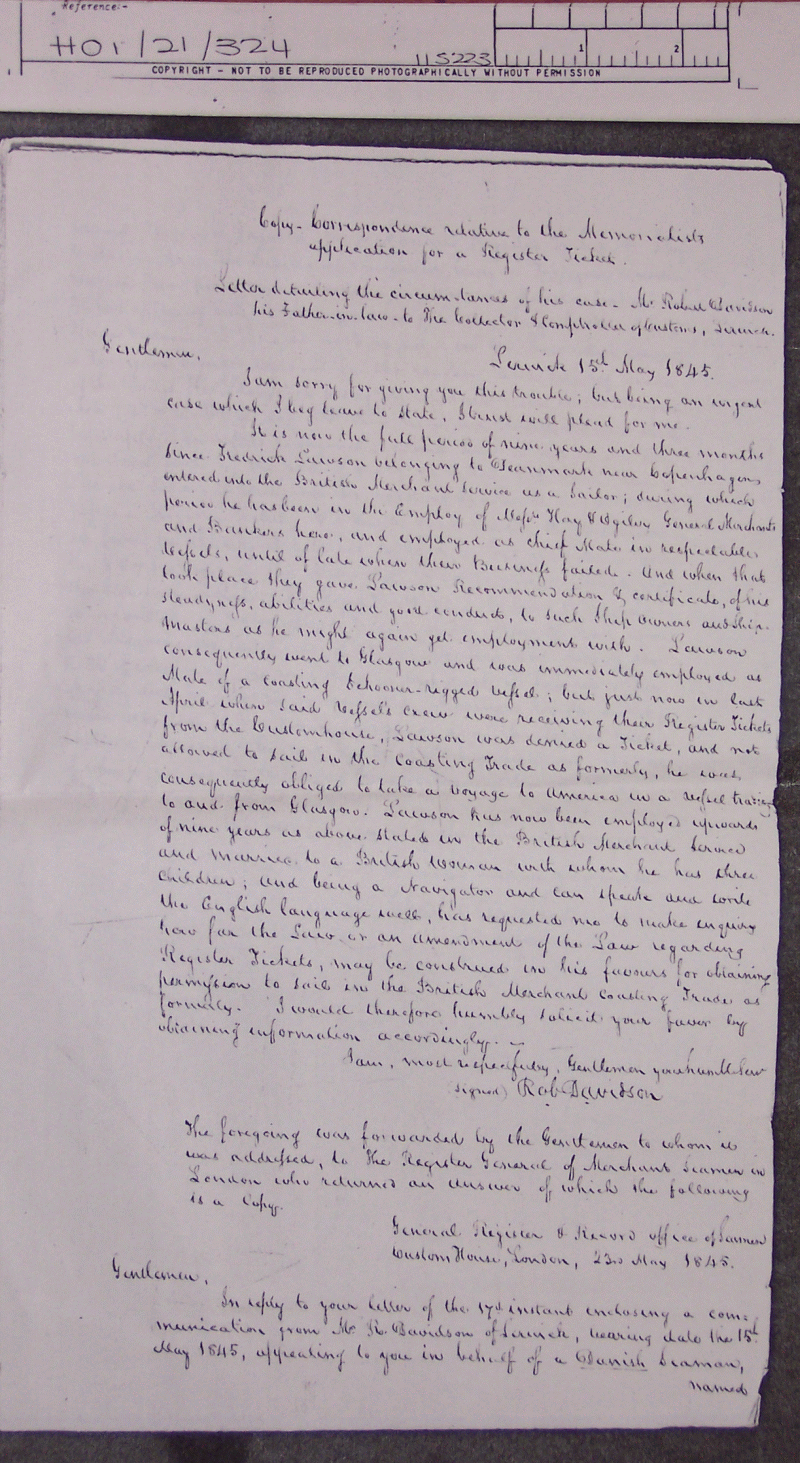 Reference:-
HO1/21/324
115223
1
2
COPYRIGHT - NOT TO BE REPRODUCED PHOTOGRAPHICALLY WITHOUT PERMISSION
Copy - Correspondence relative to the Memorialists
application for a Register Ticket.
Letter detailing the circumstances of his case - Mr Robert Davidson
his Father-in-law - to The Collector & Comptroller of Customs, Lerwick.
Gentlemen,
Lerwick 15th May 1845.
I am sorry for giving you this trouble; but being an urgent
case which I beg leave to state, I trust will plead for me.
It is now the full period of nine years and three months
since Fredrick Lawson belonging to Deanmark near Copenhagen
entered into the British Merchant Service as a Sailor; during which
period he has been in the Employ of Messrs Hay & Ogilvy General Merchants
and Bankers here, and employed as chief Mate in respectable
Vessels, until of late when their Business failed - And when that
took place they gave Lawson Recommendation & certificate, of his
steadyness, abilities and good conduct, to such Ship Owners and Ship-
Masters as he might again get employment with. Lawson
consequently went to Glasgow and was immediately employed as
Mate of a coasting Schooner-rigged Vessel; but just now in last
April when said Vessel's Crew were receiving their Register Tickets
from the Customhouse, Lawson was denied a Ticket, and not
allowed to sail in the Coasting Trade as formerly, he was
consequently obliged to take a voyage to America in a vessel trading
to and from Glasgow. Lawson has now been employed upwards
of nine years as above stated in the British Merchant Service
and married to a British Woman with whom he has three
children; and being a Navigator and can speak and write
the English language well, has requested me to make enquiry
how far the Law or an amendment of the Law regarding
Register Tickets, may be construed in his favours for obtaining
permission to sail in the British Merchant Coasting Trade as
formerly. I would therefore humbly solicit your favor by
obtaining information accordingly. -
I am, most respectfully, Gentlemen your humble Serv
(signed) Rob Davidson
The foregoing was forwarded by the Gentlemen to whom it
was addressed, to The Register General of Merchant Seamen in
London who returned an answer of which the following
is a Copy.
General Register & Record office of Seamen
Custom House, London, 23rd May 1845.
Gentlemen,
In reply to your letter of the 17th instant inclosing a com=
munication from Mr R. Davidson of Lerwick, bearing date the 15th
May 1845, appealing to you in behalf of a Danish Seaman,
named